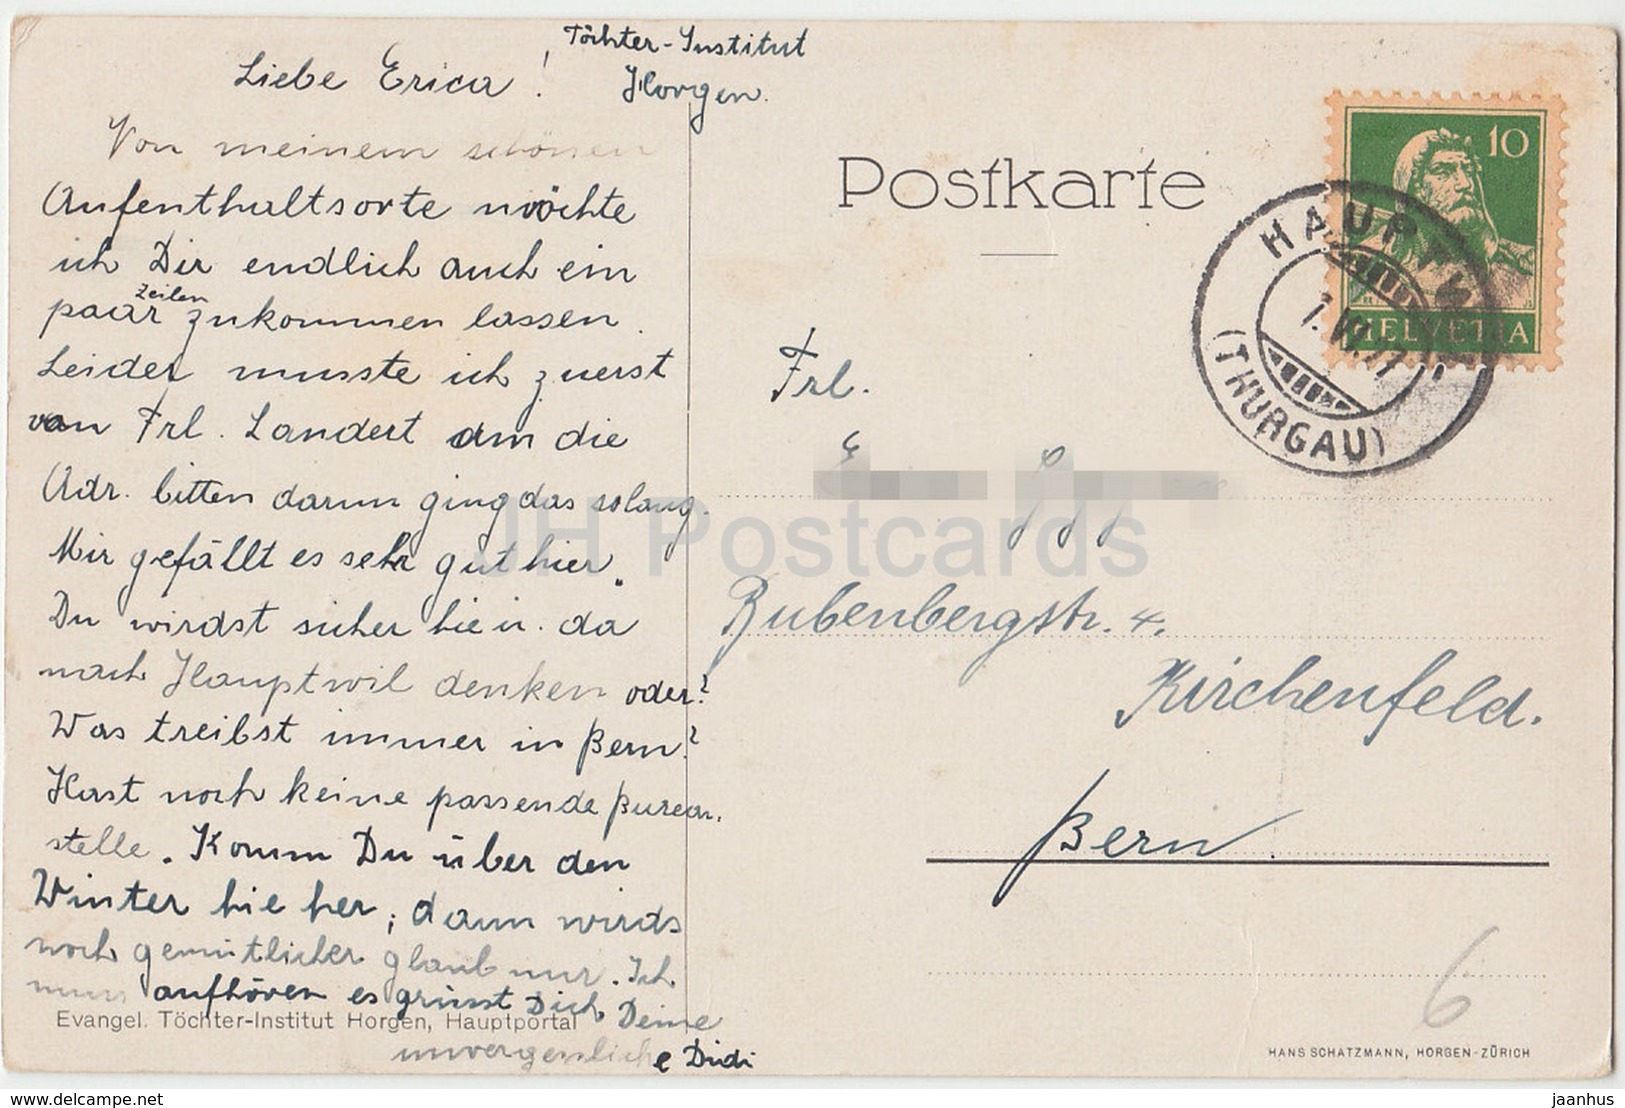 Töchter-Institut
Horgen.
Liebe Erica!
Von meinem schönen
Aufenthaltsorte möchte
ich Dir endlich auch ein
paar Zeilen zukommen lassen.
Leider musste ich zuerst
von Frl. Landert um die
Adr. bitten darum ging das solang.
Mir gefällt es sehr gut hier.
Du wirdst sicher hie u. da
nach Hauptwil denken oder?
Was treibst immer in Bern?
Hast noch keine passende Bureau-
stelle. Komm Du über den
Winter hie her, dann wirds
noch gemütlicher glaub nur. Ich
muss aufhören es grüsst Dich Deine
unvergessliche Dudi
Evangel. Töchter-Institut Horgen, Hauptportal
Postkarte
10
HELVETIA
HAUPTWIL
(THURGAU)
Frl.
Bubenbergstr. 4.
Kirchenfeld.
Bern
6
HANS SCHATZMANN, HORGEN-ZÜRICH
JH Postcards
www.delcampe.net
jaanhus